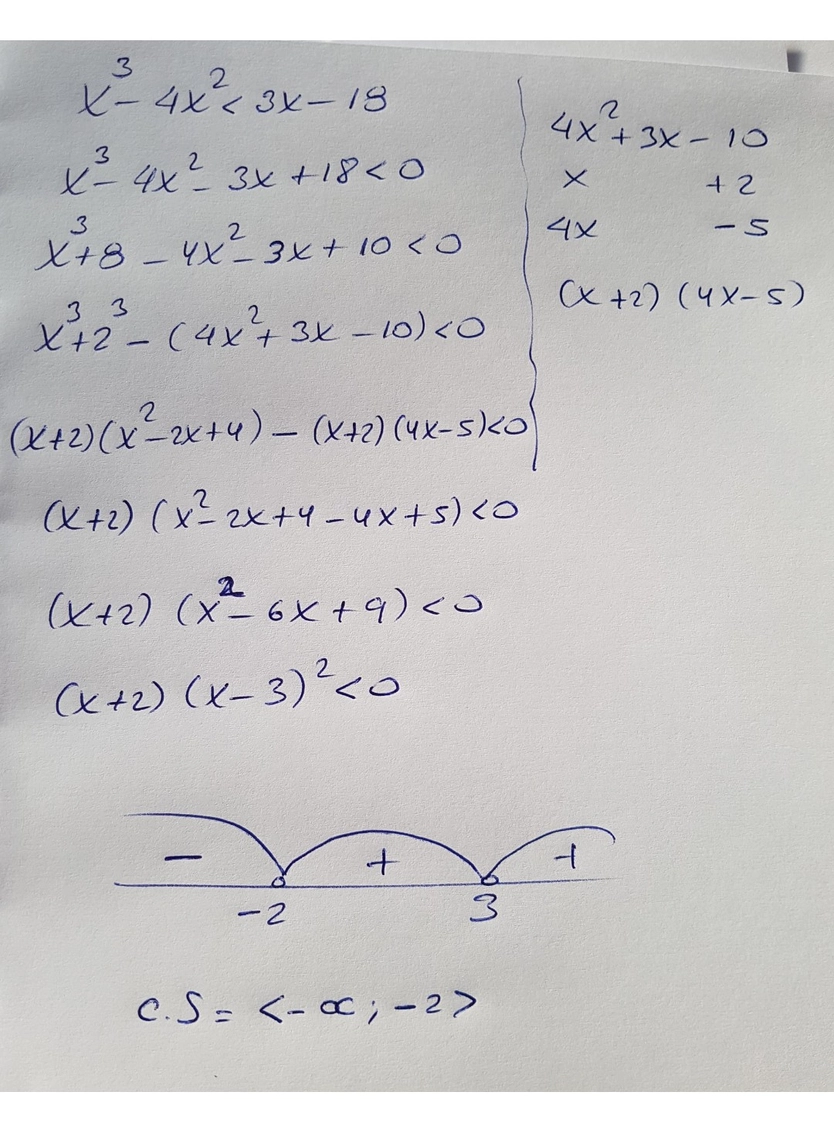 x³ - 4x² < 3x - 18
x³ - 4x² - 3x + 18 < 0
x³ + 8 - 4x² - 3x + 10 < 0
x³ + 2³ - (4x² + 3x - 10) < 0
(x+2)(x² - 2x + 4) - (x+2)(4x - 5) < 0
(x+2) (x² - 2x + 4 - 4x + 5) < 0
(x+2) (x² - 6x + 9) < 0
(x+2) (x - 3)² < 0
4x² + 3x - 10
x +2
4x -5
(x+2) (4x-5)
- + +
-2 3
C.S = <-∞; -2>